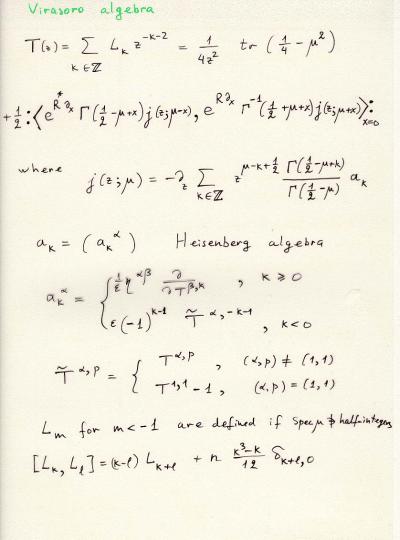 Virasoro algebra
T(z) = ∑_{k∈ℤ} L_k z^{-k-2} = 1/(4z²) tr (1/4 - μ²)
+ 1/2 :⟨ e^{R* ∂_x} Γ(1/2 - μ + x) j(z; μ-x), e^{R ∂_x} Γ^{-1}(1/2 + μ + x) j(z; μ+x) ⟩:_{x=0}
where j(z; μ) = -∂_z ∑_{k∈ℤ} z^{μ-k+1/2} Γ(1/2 - μ + k)/Γ(1/2 - μ) a_k
a_k = (a_k^α) Heisenberg algebra
a_k^α = { 1/ε η^{αβ} ∂/∂T^{β,k} , k ⩾ 0
ε(-1)^{k-1} T̃^{α,-k-1} , k < 0
T̃^{α,p} = { T^{α,p} , (α,p) ≠ (1,1)
T^{1,1} - 1 , (α,p) = (1,1)
L_m for m < -1 are defined if Spec μ ∌ half-integers
[L_k, L_l] = (k-l) L_{k+l} + n (k³-k)/12 δ_{k+l,0}